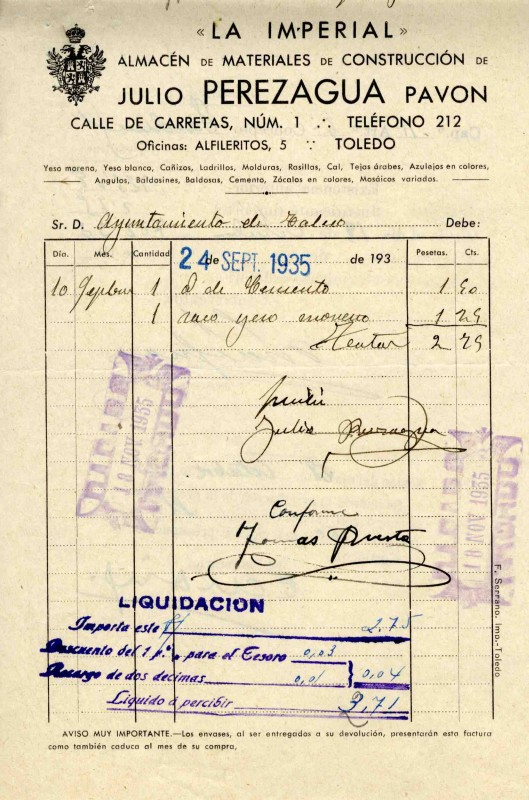 « LA IMPERIAL »
ALMACÉN DE MATERIALES DE CONSTRUCCIÓN DE
JULIO PEREZAGUA PAVON
CALLE DE CARRETAS, NÚM. 1 ∴ TELÉFONO 212
Oficinas: ALFILERITOS, 5 ∵ TOLEDO
Yeso moreno, Yeso blanco, Cañizos, Ladrillos, Molduras, Rasillas, Cal, Tejas árabes, Azulejos en colores,
Angulos, Baldosines, Baldosas, Cemento, Zócalos en colores, Mosáicos variados.
Sr. D. Ayuntamiento de Toledo Debe:
Día. Mes. Cantidad 24 SEPT. 1935 de de 193 Pesetas. Cts.
10 Sepbre 1 de Cemento 1 50
1 saco yeso moreno 1 25
2 75
Recibí
Julio Perezagua
Conforme
Tomas
18 NOV 1935
NOV 1935
F. Serrano. Imp.-Toledo
LIQUIDACIÓN
Importa esta 2.75
Descuento del 1 p.º/o para el Tesoro 0,03
Recargo de dos decimas 0,01 0,04
Liquido á percibir 2,71
AVISO MUY IMPORTANTE.—Los envases, al ser entregados a su devolución, presentarán esta factura
como también caduca al mes de su compra,